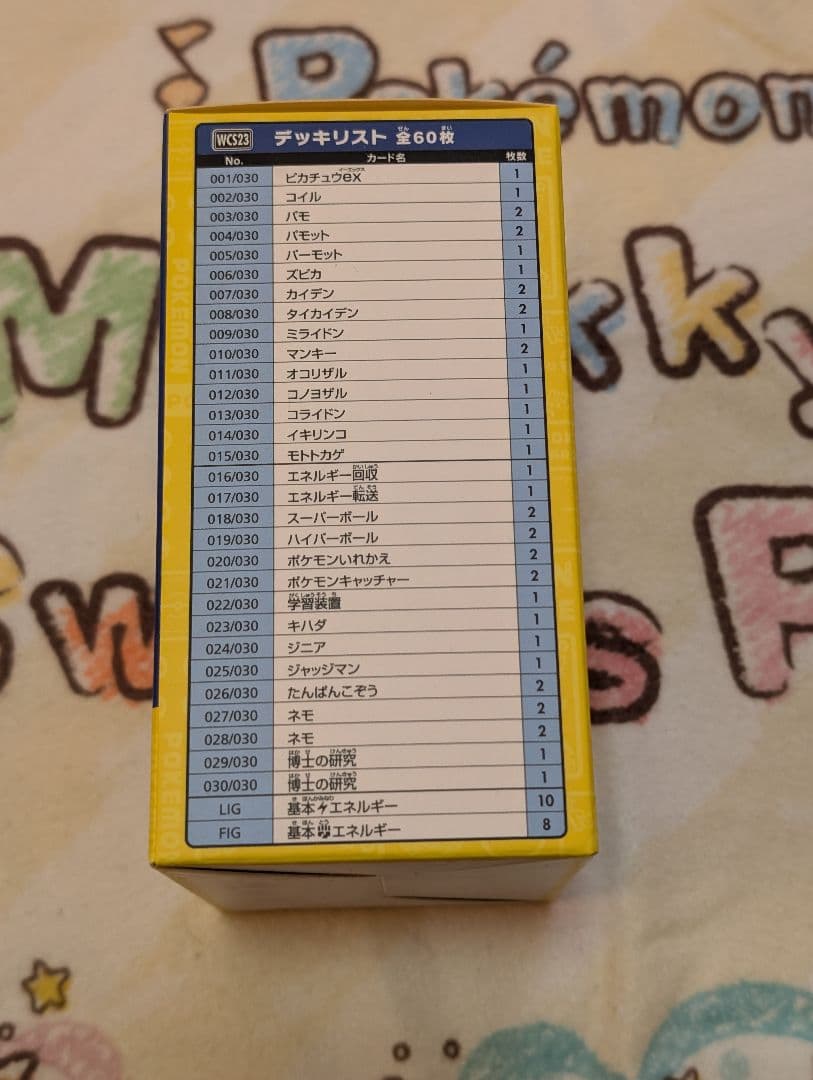 Pokémon
WCS23 デッキリスト 全60枚
No. カード名 枚数
001/030 ピカチュウex 1
002/030 コイル 1
003/030 パモ 2
004/030 パモット 2
005/030 パーモット 1
006/030 ズピカ 1
007/030 カイデン 2
008/030 タイカイデン 2
009/030 ミライドン 1
010/030 マンキー 2
011/030 オコリザル 1
012/030 コノヨザル 1
013/030 コライドン 1
014/030 イキリンコ 1
015/030 モトトカゲ 1
016/030 エネルギー回収 1
017/030 エネルギー転送 1
018/030 スーパーボール 2
019/030 ハイパーボール 2
020/030 ポケモンいれかえ 2
021/030 ポケモンキャッチャー 2
022/030 学習装置 1
023/030 キハダ 1
024/030 ジニア 1
025/030 ジャッジマン 1
026/030 たんぱんこぞう 2
027/030 ネモ 2
028/030 ネモ 2
029/030 博士の研究 1
030/030 博士の研究 1
LIG 基本エネルギー 10
FIG 基本エネルギー 8
POKEMON